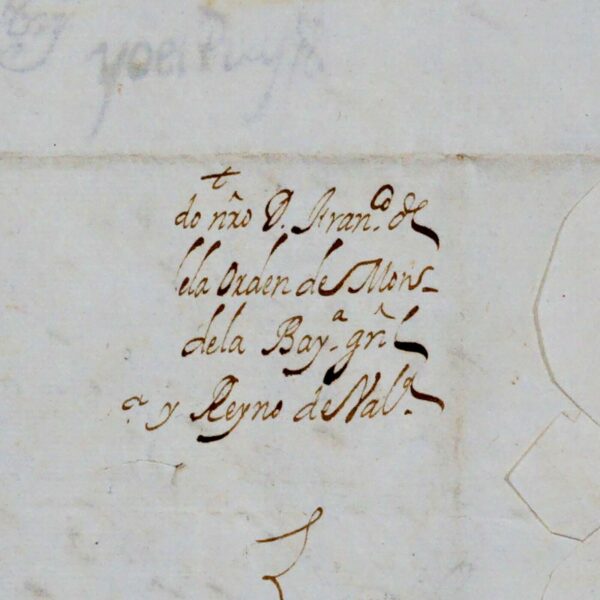 do nr̃o D. Fran.co de
dela Orden de Mons-
dela Bay.a gñl
a y Reyno de Val.a